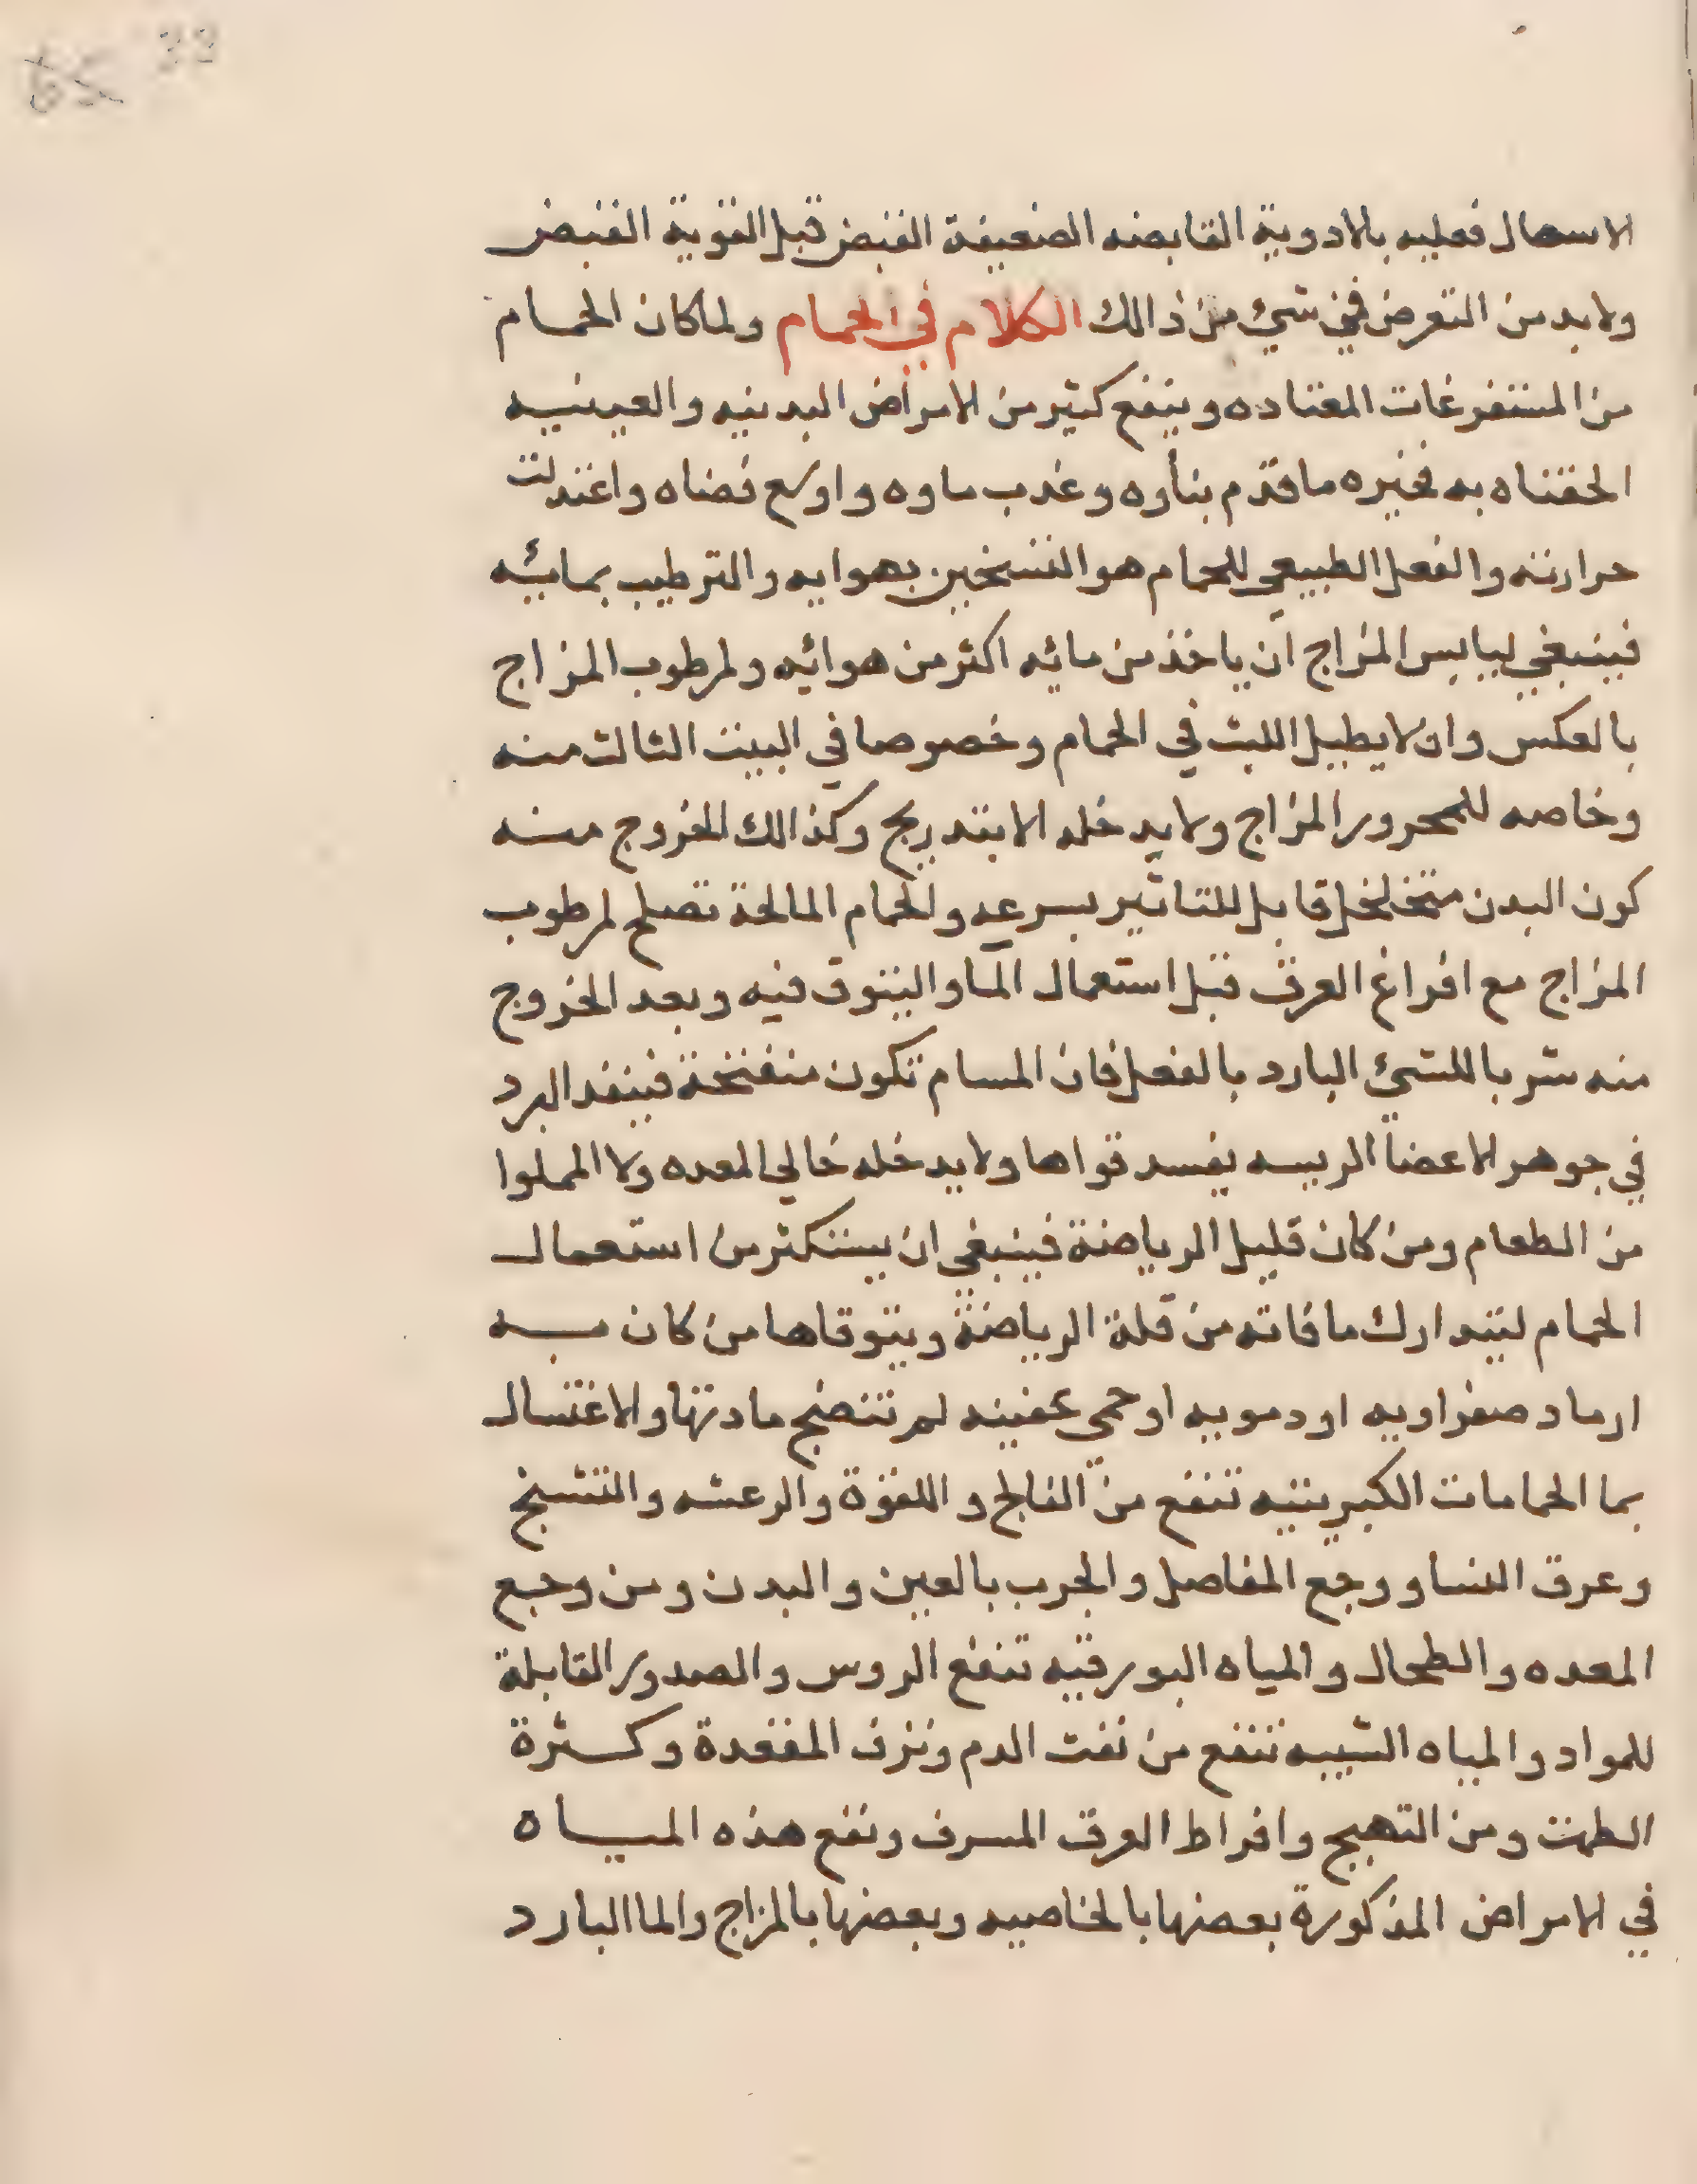 الاسهال فعليه بالادوية القابضه الضعيفة القبض قبل القوية القبض
ولابد من التعرض في شئ من ذالك الكلام في الحمام ولما كان الحمام
من المستفرغات المعتاده وينفع كثير من الامراض البدنيه والعينيه
الحقناه به فخيره ما قدم بناوه وعذب ماوه واوسع فضاه واعتدلت
حرارته والفعل الطبيعي للحمام هو التسخين بهوايه والترطيب بمائيه
فينبغي ليابس المزاج ان ياخذ من مائه اكثر من هوائيه ولمرطوب المزاج
بالعكس وان لا يطيل اللبث في الحمام وخصوصا في البيت الثالث منه
وخاصه للمحرور المزاج ولا يدخله الا بتدريج وكذالك الخروج منه
كون البدن متخلخل قابل للتاثير بسرعه والحمام المالحة تصلح لمرطوب
المزاج مع افراغ العرق قبل استعمال الما والبنوق فيه وبعد الخروج
منه شربا للشئ البارد بالفعل فان المسام تكون منفتحة فينفد البرد
في جوهر الاعضا الريسه يفسد قواها ولا يدخله خالي المعده ولا المملوا
من الطعام ومن كان قليل الرياضة فينبغي ان يستكثر من استعمال
الحمام ليتدارك ما فاته من قلة الرياضة ويتوقاها من كان به
ارماد صفراويه او دمويه او حمي عفينه لم تنضج مادتها والاغتسال
بما الحمامات الكبريتيه تنفع من الفالج واللقوة والرعشه والتشنج
وعرق النسا ووجع المفاصل والجرب بالعين والبدن ومن وجع
المعده والطحال والمياه البورقيه تنفع الروس والصدور القابلة
للمواد والمياه الشبيه تنفع من نفث الدم ونزف المقعدة وكثرة
الطمث ومن التهبج وافراط العرق المسرف ونفع هذه المياه
في الامراض المذكورة بعضها بالخاصيه وبعضها بالمزاج والما البارد